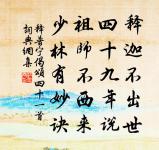 释迦不出世
四十九年说
祖师不西来
少林有妙诀
释善宁偈颂四十一首
词典网集